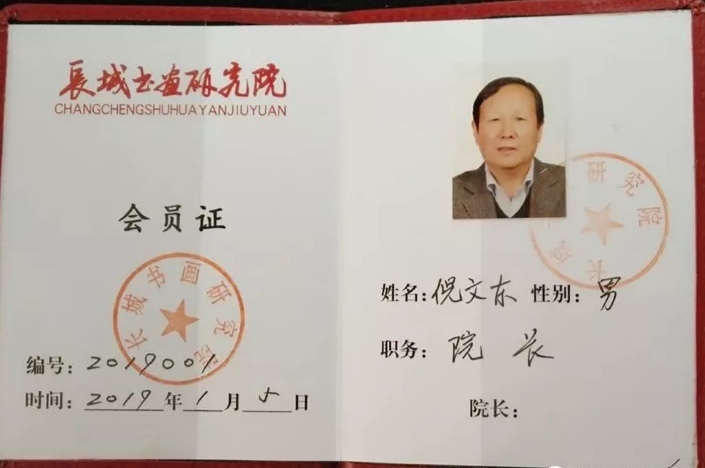 長城书画研究院
CHANGCHENGSHUHUAYANJIUYUAN
会员证
长城书画研究院
编号：2019001
时间：2019年1月5日
研究院
长
姓名：倪文东 性别：男
职务：院长
院长：